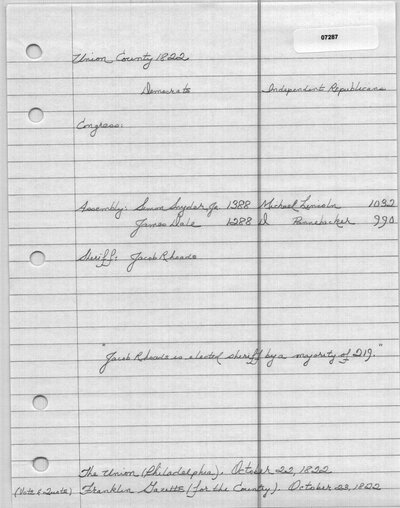 07287
Union County 1822
Democrats Independent Republicans
Congress:
Assembly: Simon Snyder, Jr. 1388 Michael Lincoln 1032
James Dale 1288 D Pannebacker 990
Sheriff: Jacob Rheads
"Jacob Rheads is elected sheriff by a majority of 219."
The Union (Philadelphia). October 22, 1822
(Vote & Quote) Franklin Gazette (for the County). October 23, 1822